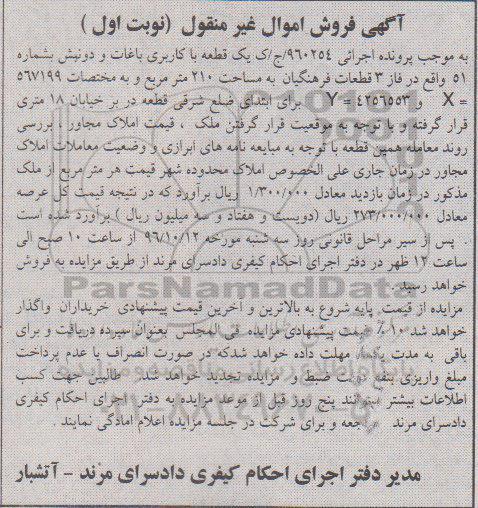 آگهی فروش اموال غیر منقول (نوبت اول)
به موجب پرونده اجرائی ۹۶۰۲۵۴/ج/ک یک قطعه با کاربری باغات و دونبش بشماره
۵۱ واقع در فاز ۳ قطعات فرهنگیان به مساحت ۲۱۰ متر مربع و به مختصات ۵۶۷۱۹۹
= X و ۴۲۵۶۵۵۳ = Y برای ابتدای ضلع شرقی قطعه در بر خیابان ۱۸ متری
قرار گرفته و با توجه به موقعیت قرار گرفتن ملک ، قیمت املاک مجاور ، بررسی
روند معامله همین قطعه با توجه به مبایعه نامه های ابرازی و وضعیت معاملات املاک
مجاور در زمان جاری علی الخصوص املاک محدوده شهر قیمت هر متر مربع از ملک
مذکور در زمان بازدید معادل ۱/۳۰۰/۰۰۰ ریال برآورد که در نتیجه قیمت کل عرصه
معادل ۲۷۳/۰۰۰/۰۰۰ ریال (دویست و هفتاد و سه میلیون ریال) برآورد شده است
. پس از سیر مراحل قانونی روز سه شنبه مورخه ۹۶/۱۰/۱۲ از ساعت ۱۰ صبح الی
ساعت ۱۲ ظهر در دفتر اجرای احکام کیفری دادسرای مرند از طریق مزایده به فروش
خواهد رسید .
مزایده از قیمت پایه شروع به بالاترین و آخرین قیمت پیشنهادی خریداران واگذار
خواهد شد ۱۰٪ قیمت پیشنهادی مزایده فی المجلس بعنوان سپرده دریافت و برای
باقی به مدت یکماه مهلت داده خواهد شد که در صورت انصراف یا عدم پرداخت
مبلغ واریزی بنفع دولت ضبط و مزایده تجدید خواهد شد. طالبین جهت کسب
اطلاعات بیشتر میتوانند پنج روز قبل از موعد مزایده به دفتر اجرای احکام کیفری
دادسرای مرند مراجعه و برای شرکت در جلسه مزایده اعلام آمادگی نمایند .
مدیر دفتر اجرای احکام کیفری دادسرای مرند - آتشبار
ParsNamadData